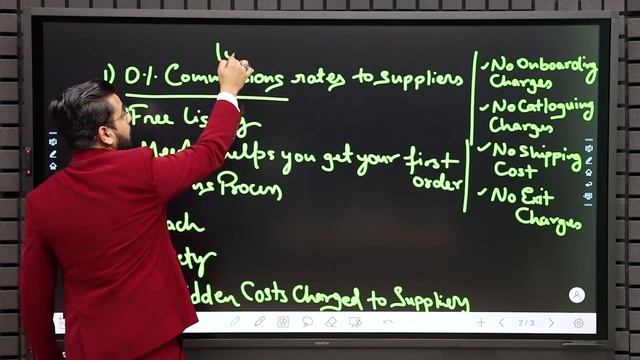 1) 0%. Commissions rates to suppliers
Free Listing
helps you get your first
order
Process
Hidden Costs Charged to Suppliers
✓ No Onboarding
Charges
✓ No Catloguing
Charges
✓ No Shipping
Cost
✓ No Exit
Charges
2/3